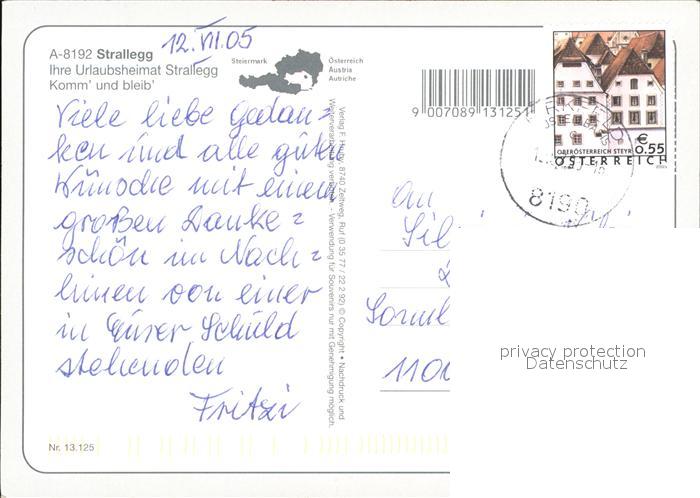 12. VII. 05
A-8192 Strallegg
Ihre Urlaubsheimat Strallegg
Komm' und bleib'
Steiermark
Österreich
Austria
Autriche
9 007089 131251
Viele liebe Gedan-
ken und alle guten
Wünsche mit einem
großen Danke=
schön im Nach=
hinein von einer
in Eurer Schuld
stehenden
Fritzi
Nr. 13.125
Verlag F. Huby, 8740 Zeltweg, Ruf (0 35 77 / 22 2 92) © Copyright • Nachdruck und
Weiterveräußerung verboten • Verwendung für Souvenirs nur mit Genehmigung möglich.
€
0.55
OBERÖSTERREICH STEYR
ÖSTERREICH
8190
An
Sil
110
privacy protection
Datenschutz